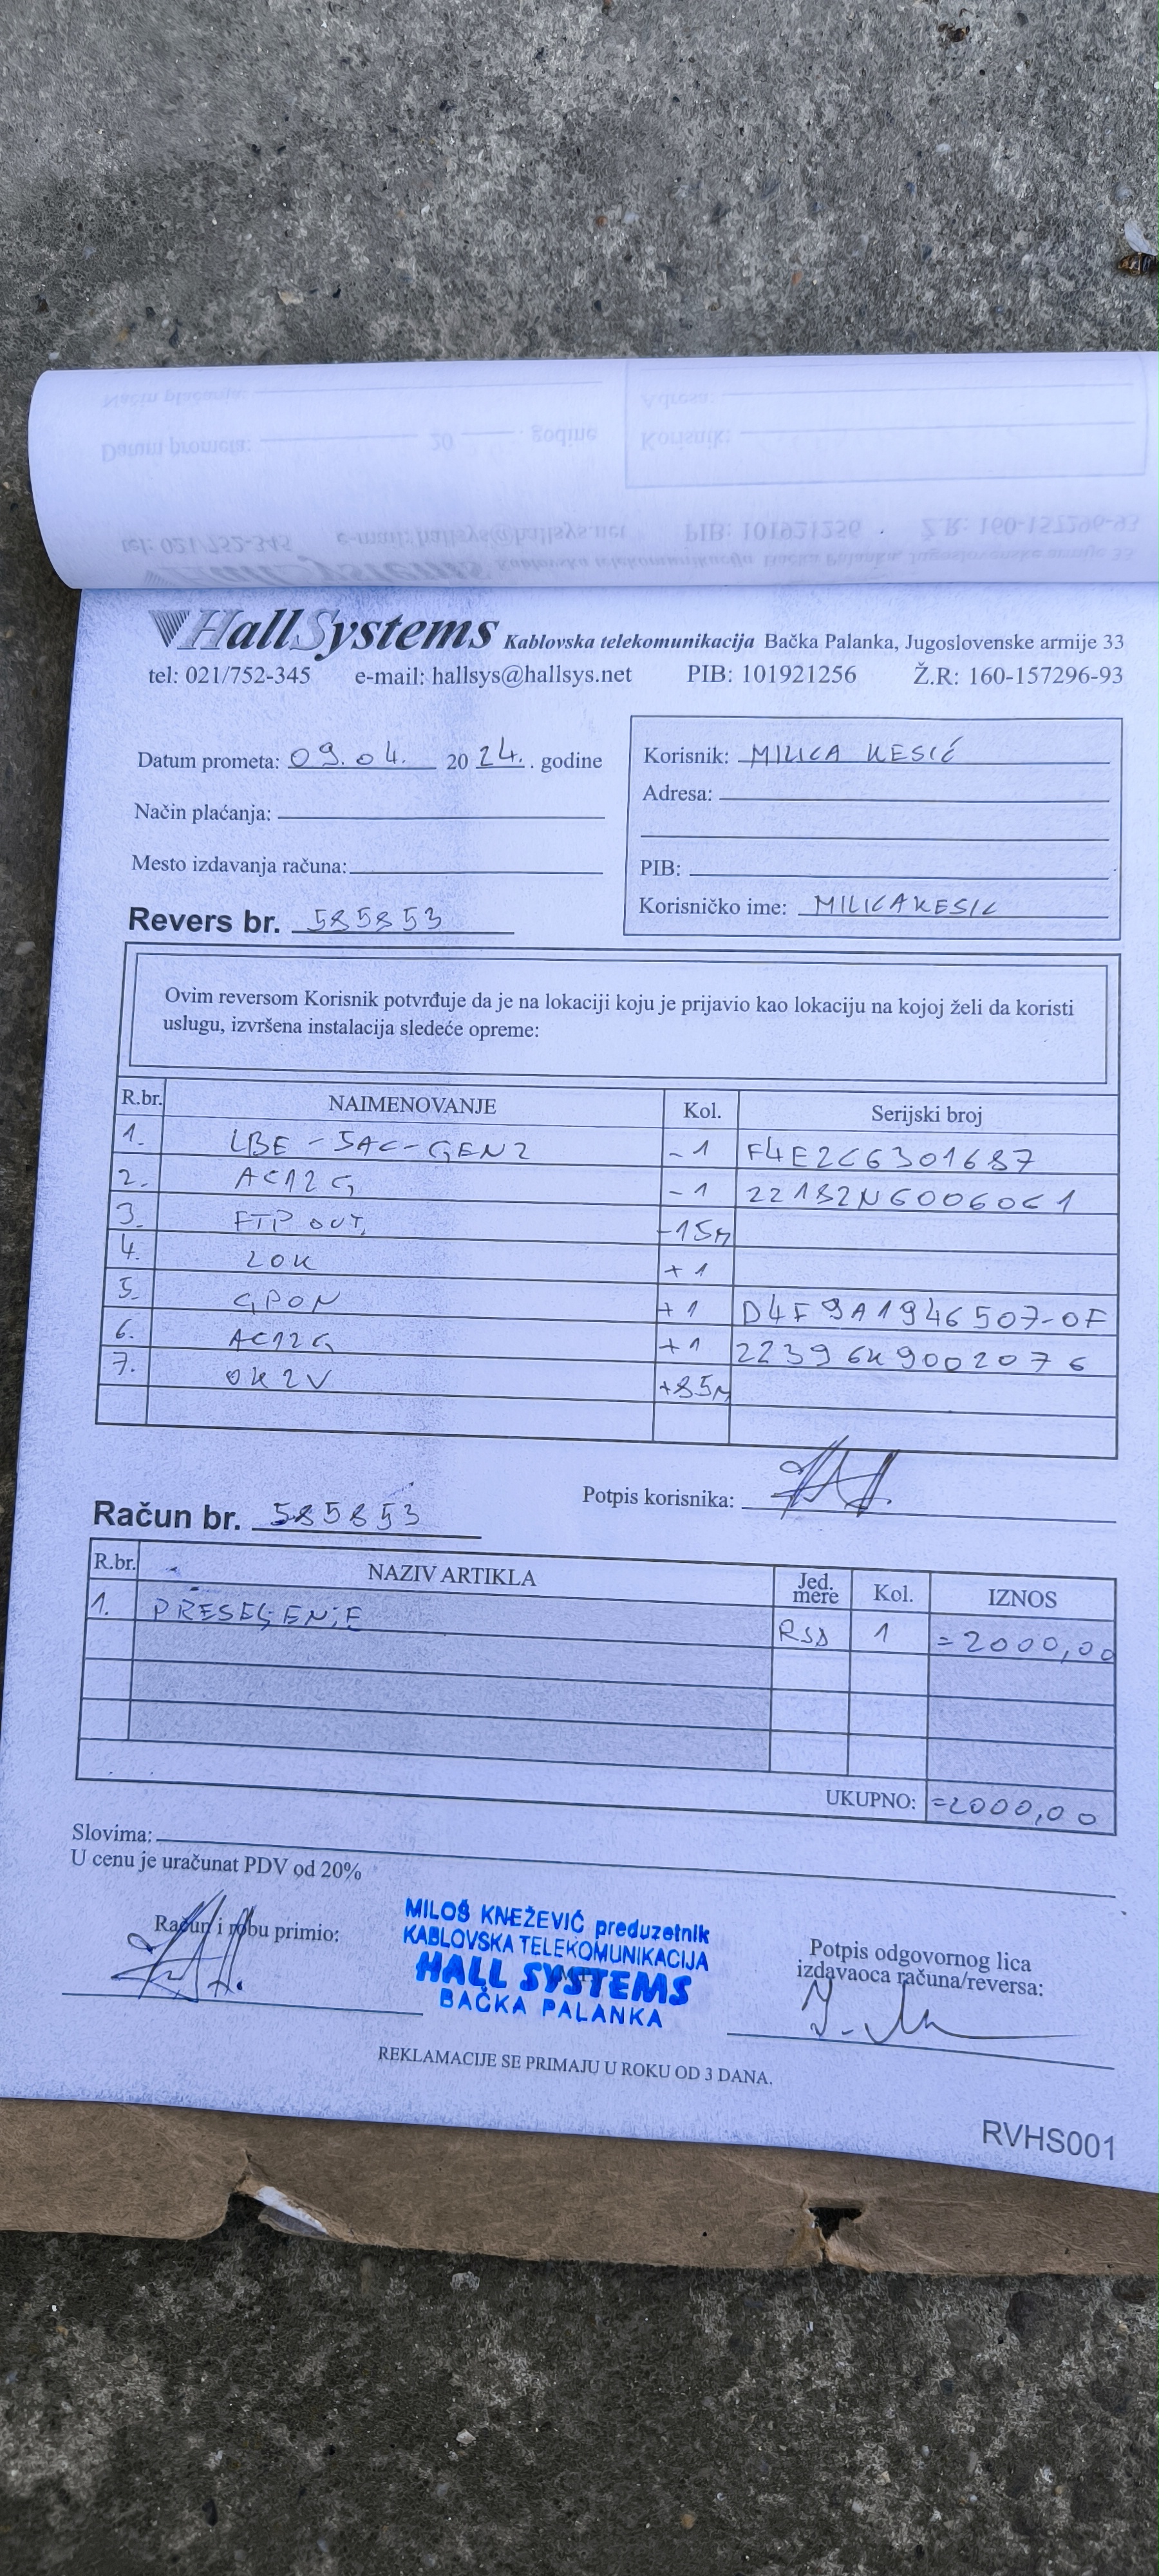 HallSystems Kablovska telekomunikacija Bačka Palanka, Jugoslovenske armije 33
tel: 021/752-345 e-mail: hallsys@hallsys.net PIB: 101921256 Ž.R: 160-157296-93
Datum prometa: 09.04. 20 24. . godine
Način plaćanja:
Mesto izdavanja računa:
Korisnik: MILICA KESIĆ
Adresa:
PIB:
Korisničko ime: MILICAKESIC
Revers br. 585853
Ovim reversom Korisnik potvrđuje da je na lokaciji koju je prijavio kao lokaciju na kojoj želi da koristi
uslugu, izvršena instalacija sledeće opreme:
R.br. NAIMENOVANJE Kol. Serijski broj
1. LBE-5AC-GEN2 -1 F4E2C6301687
2. AC12G -1 22182N6006061
3. FTP OUT. -15m
4. ZOK +1
5. GPON +1 D4F9A1946507-0F
6. AC12G +1 22396K9002076
7. OK2V +85m
Potpis korisnika:
Račun br. 585853
R.br. NAZIV ARTIKLA Jed. mere Kol. IZNOS
1. PRESELJENJE RSD 1 =2000,00
UKUPNO: =2000,00
Slovima:
U cenu je uračunat PDV od 20%
Račun i robu primio:
MILOŠ KNEŽEVIĆ preduzetnik
KABLOVSKA TELEKOMUNIKACIJA
HALL SYSTEMS
BAČKA PALANKA
Potpis odgovornog lica
izdavaoca računa/reversa:
REKLAMACIJE SE PRIMAJU U ROKU OD 3 DANA.
RVHS001